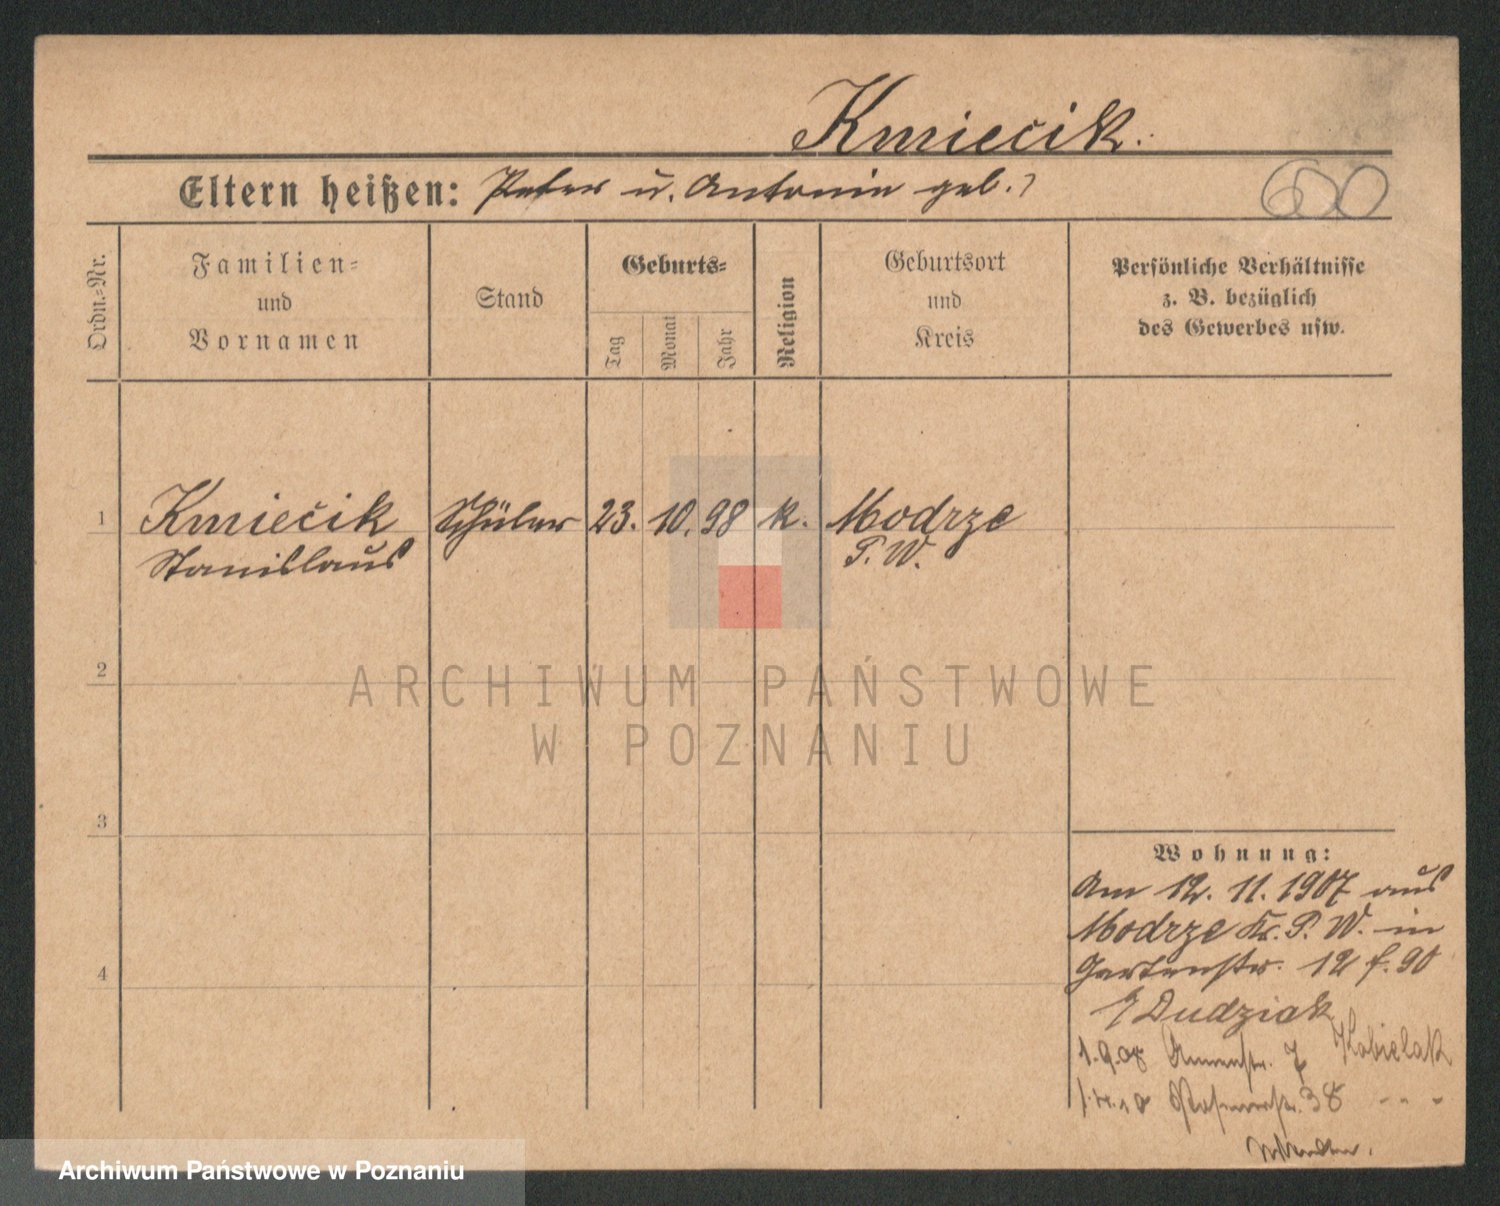 Kmiečik.
600
Eltern heißen: Peter u. Antonie geb. ?
Ordn.=Nr.
Familien=
und
Vornamen
Stand
Geburts=
Tag
Monat
Jahr
Religion
Geburtsort
und
Kreis
Persönliche Verhältnisse
z. B. bezüglich
des Gewerbes usw.
1 Kmiečik Schüler 23. 10. 98 k. Modrze
Stanislaus P. W.
2
ARCHIWUM PAŃSTWOWE
W POZNANIU
3
Wohnung:
Am 12. 11. 1907 aus
Modrze Kr. P. W. in
4
Gartenstr. 12 f. 90
Dudziak
1.9.08 7 Kobielak
38 - - -
Archiwum Państwowe w Poznaniu